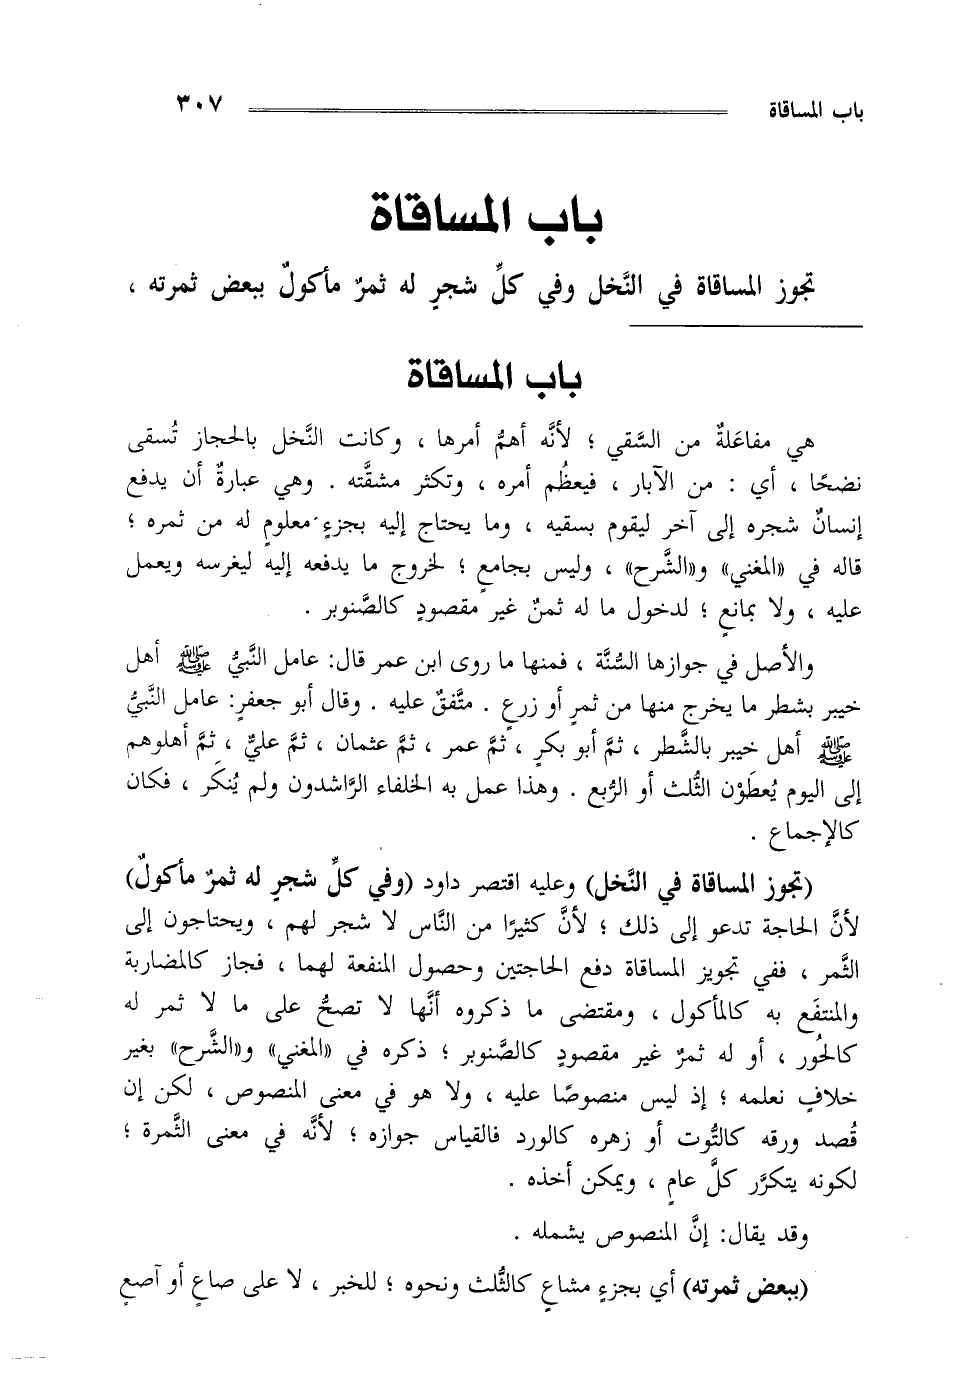 باب المساقاة ٣٠٧
باب المساقاة
تجوز المساقاة في النَّخل وفي كلِّ شجرٍ له ثمرٌ مأكولٌ ببعض ثمرته ،
باب المساقاة
هي مفاعَلةٌ من السَّقي ؛ لأنَّه أهمُّ أمرها ، وكانت النَّخل بالحجاز تُسقى
نضحًا ، أي : من الآبار ، فيعظُم أمره ، وتكثر مشقَّته . وهي عبارةٌ أن يدفع
إنسانٌ شجره إلى آخر ليقوم بسقيه ، وما يحتاج إليه بجزءٍ معلومٍ له من ثمره ؛
قاله في «المغني» و«الشَّرح» ، وليس بجامعٍ ؛ لخروج ما يدفعه إليه ليغرسه ويعمل
عليه ، ولا بمانعٍ ؛ لدخول ما له ثمنٌ غير مقصودٍ كالصَّنوبر .
والأصل في جوازها السُّنَّة ، فمنها ما روى ابن عمر قال: عامل النَّبيُّ ﷺ أهل
خيبر بشطر ما يخرج منها من ثمرٍ أو زرعٍ . متَّفقٌ عليه . وقال أبو جعفرٍ: عامل النَّبيُّ
ﷺ أهل خيبر بالشَّطر ، ثمَّ أبو بكرٍ ، ثمَّ عمر ، ثمَّ عثمان ، ثمَّ عليٌّ ، ثمَّ أهلوهم
إلى اليوم يُعطَوْن الثُّلث أو الرُّبع . وهذا عمل به الخلفاء الرَّاشدون ولم يُنكَر ، فكان
كالإجماع .
(تجوز المساقاة في النَّخل) وعليه اقتصر داود (وفي كلِّ شجرٍ له ثمرٌ مأكولٌ)
لأنَّ الحاجة تدعو إلى ذلك ؛ لأنَّ كثيرًا من النَّاس لا شجر لهم ، ويحتاجون إلى
الثَّمر ، ففي تجويز المساقاة دفع الحاجتين وحصول المنفعة لهما ، فجاز كالمضاربة
والمنتفَع به كالمأكول ، ومقتضى ما ذكروه أنَّها لا تصحُّ على ما لا ثمر له
كالحُور ، أو له ثمرٌ غير مقصودٍ كالصَّنوبر ؛ ذكره في «المغني» و«الشَّرح» بغير
خلافٍ نعلمه ؛ إذ ليس منصوصًا عليه ، ولا هو في معنى المنصوص ، لكن إن
قُصد ورقه كالتُّوت أو زهره كالورد فالقياس جوازه ؛ لأنَّه في معنى الثَّمرة ؛
لكونه يتكرَّر كلَّ عامٍ ، ويمكن أخذه .
وقد يقال: إنَّ المنصوص يشمله .
(ببعض ثمرته) أي بجزءٍ مشاعٍ كالثُّلث ونحوه ؛ للخبر ، لا على صاعٍ أو آصعٍ